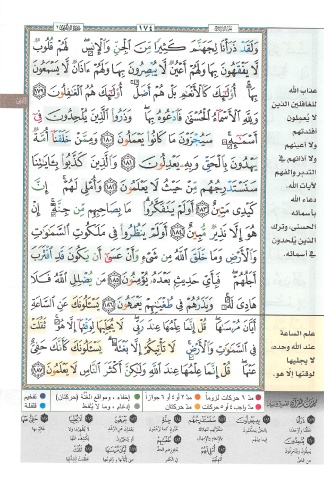 ١٧٤
وَلَقَدْ ذَرَأْنَا لِجَهَنَّمَ كَثِيرًا مِّنَ ٱلْجِنِّ وَٱلْإِنسِ ۖ لَهُمْ قُلُوبٌ
لَّا يَفْقَهُونَ بِهَا وَلَهُمْ أَعْيُنٌ لَّا يُبْصِرُونَ بِهَا وَلَهُمْ ءَاذَانٌ لَّا يَسْمَعُونَ
بِهَآ ۚ أُو۟لَـٰٓئِكَ كَٱلْأَنْعَـٰمِ بَلْ هُمْ أَضَلُّ ۚ أُو۟لَـٰٓئِكَ هُمُ ٱلْغَـٰفِلُونَ ١٧٩
وَلِلَّهِ ٱلْأَسْمَآءُ ٱلْحُسْنَىٰ فَٱدْعُوهُ بِهَا ۖ وَذَرُوا۟ ٱلَّذِينَ يُلْحِدُونَ فِىٓ
أَسْمَـٰٓئِهِۦ ۚ سَيُجْزَوْنَ مَا كَانُوا۟ يَعْمَلُونَ ١٨٠ وَمِمَّنْ خَلَقْنَآ أُمَّةٌ
يَهْدُونَ بِٱلْحَقِّ وَبِهِۦ يَعْدِلُونَ ١٨١ وَٱلَّذِينَ كَذَّبُوا۟ بِـَٔايَـٰتِنَا
سَنَسْتَدْرِجُهُم مِّنْ حَيْثُ لَا يَعْلَمُونَ ١٨٢ وَأُمْلِى لَهُمْ ۚ إِنَّ
كَيْدِى مَتِينٌ ١٨٣ أَوَلَمْ يَتَفَكَّرُوا۟ ۗ مَا بِصَاحِبِهِم مِّن جِنَّةٍ ۚ إِنْ
هُوَ إِلَّا نَذِيرٌ مُّبِينٌ ١٨٤ أَوَلَمْ يَنظُرُوا۟ فِى مَلَكُوتِ ٱلسَّمَـٰوَٰتِ
وَٱلْأَرْضِ وَمَا خَلَقَ ٱللَّهُ مِن شَىْءٍ وَأَنْ عَسَىٰٓ أَن يَكُونَ قَدِ ٱقْتَرَبَ
أَجَلُهُمْ ۖ فَبِأَىِّ حَدِيثٍۭ بَعْدَهُۥ يُؤْمِنُونَ ١٨٥ مَن يُضْلِلِ ٱللَّهُ فَلَا
هَادِىَ لَهُۥ ۚ وَيَذَرُهُمْ فِى طُغْيَـٰنِهِمْ يَعْمَهُونَ ١٨٦ يَسْـَٔلُونَكَ عَنِ ٱلسَّاعَةِ
أَيَّانَ مُرْسَىٰهَا ۖ قُلْ إِنَّمَا عِلْمُهَا عِندَ رَبِّى ۖ لَا يُجَلِّيهَا لِوَقْتِهَآ إِلَّا هُوَ ۚ ثَقُلَتْ
فِى ٱلسَّمَـٰوَٰتِ وَٱلْأَرْضِ ۚ لَا تَأْتِيكُمْ إِلَّا بَغْتَةً ۗ يَسْـَٔلُونَكَ كَأَنَّكَ حَفِىٌّ
عَنْهَا ۖ قُلْ إِنَّمَا عِلْمُهَا عِندَ ٱللَّهِ وَلَـٰكِنَّ أَكْثَرَ ٱلنَّاسِ لَا يَعْلَمُونَ ١٨٧
عذاب الله
للغافلين الذين
لا يُعملون
أفئدتهم
ولا أعينهم
ولا آذانهم في
التدبر والفهم
لآيات الله.
دعاء الله
بأسمائه
الحسنى، وترك
الذين يلحدون
في أسمائه.
علم الساعة
عند الله وحده،
لا يجليها
لوقتها إلا هو.
مد ٦ حركات لزوماً
مد ٢ أو ٤ أو ٦ جوازاً
إخفاء، ومواقع الغُنَّة (حركتان)
تفخيم
مد واجب ٤ أو ٥ حركات
مد حركتان
إدغام، وما لا يُلفَظ
قلقلة